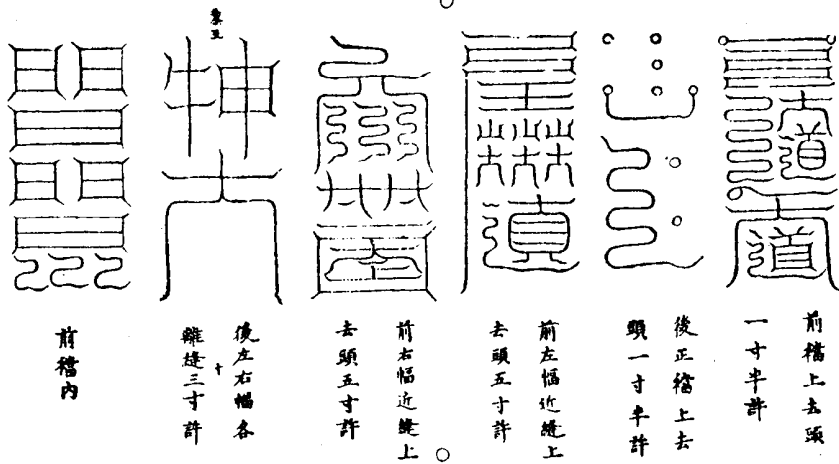 前襠上去頭
一寸半許
後正襠上去
頭一寸半許
前左幅近縫上
去頭五寸許
前右幅近縫上
去頭五寸許
後左右幅各
離縫三寸許
前襠內